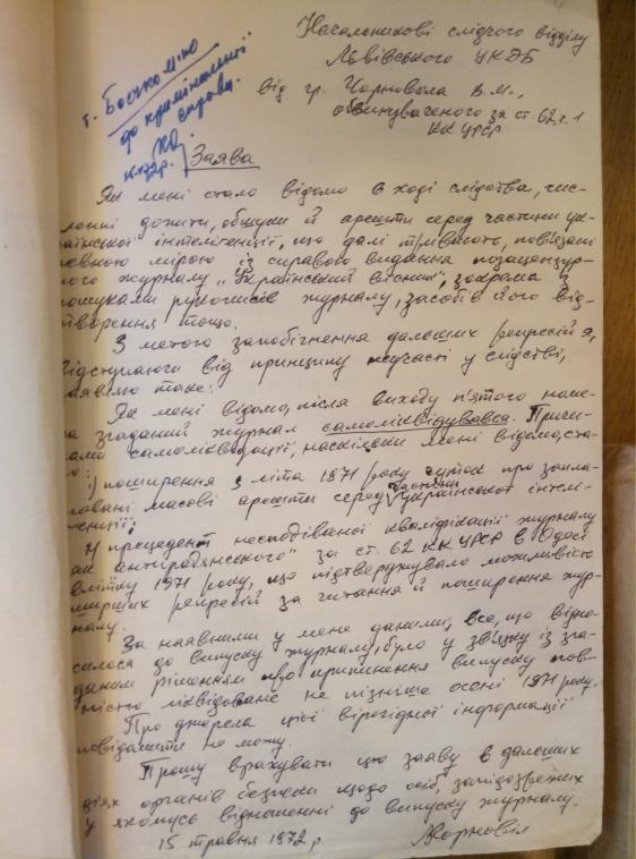 Начальникові слідчого відділу
Львівського УКДБ
від гр. Чорновола В.М.,
обвинуваченого за ст. 62 ч. 1
КК УРСР
т. Боєчко М.Ю
до кримінальної
справи.
Заява
Як мені стало відомо в ході слідства, чис-
ленні допити, обшуки й арешти серед частини ук-
раїнської інтелігенції, що далі тривають, пов'язані
певною мірою із справою видання позацензур-
ного журналу „Український вісник", зокрема з
пошуками рукописів журналу, засобів його від-
творення тощо.
З метою запобігнення дальших репресій я,
відступаючи від принципу неучасті у слідстві,
заявляю таке:
Як мені відомо, після виходу п'ятого номе-
ра згаданий журнал самоліквідувався. Причи-
нами самоліквідації, наскільки мені відомо, ста-
ло:
1) поширення з літа 1971 року чуток про запла-
новані масові арешти серед частини української інтелі-
генції;
2) прецедент несподіваної кваліфікації журналу
як „антирадянського" за ст. 62 КК УРСР в Одесі
влітку 1971 року, що підтверджувало можливість
ширших репресій за читання й поширення жур-
налу.
За наявними у мене даними, все, що відно-
силося до випуску журналу, було у зв'язку із зга-
даним рішенням про припинення випуску пов-
ністю ліквідоване не пізніше осені 1971 року.
Про джерела цієї вірогідної інформації
повідомити не можу.
Прошу врахувати цю заяву в дальших
діях органів безпеки щодо осіб, запідозрених
у якомусь відношенні до випуску журналу.
15 травня 1972 р
Чорновіл